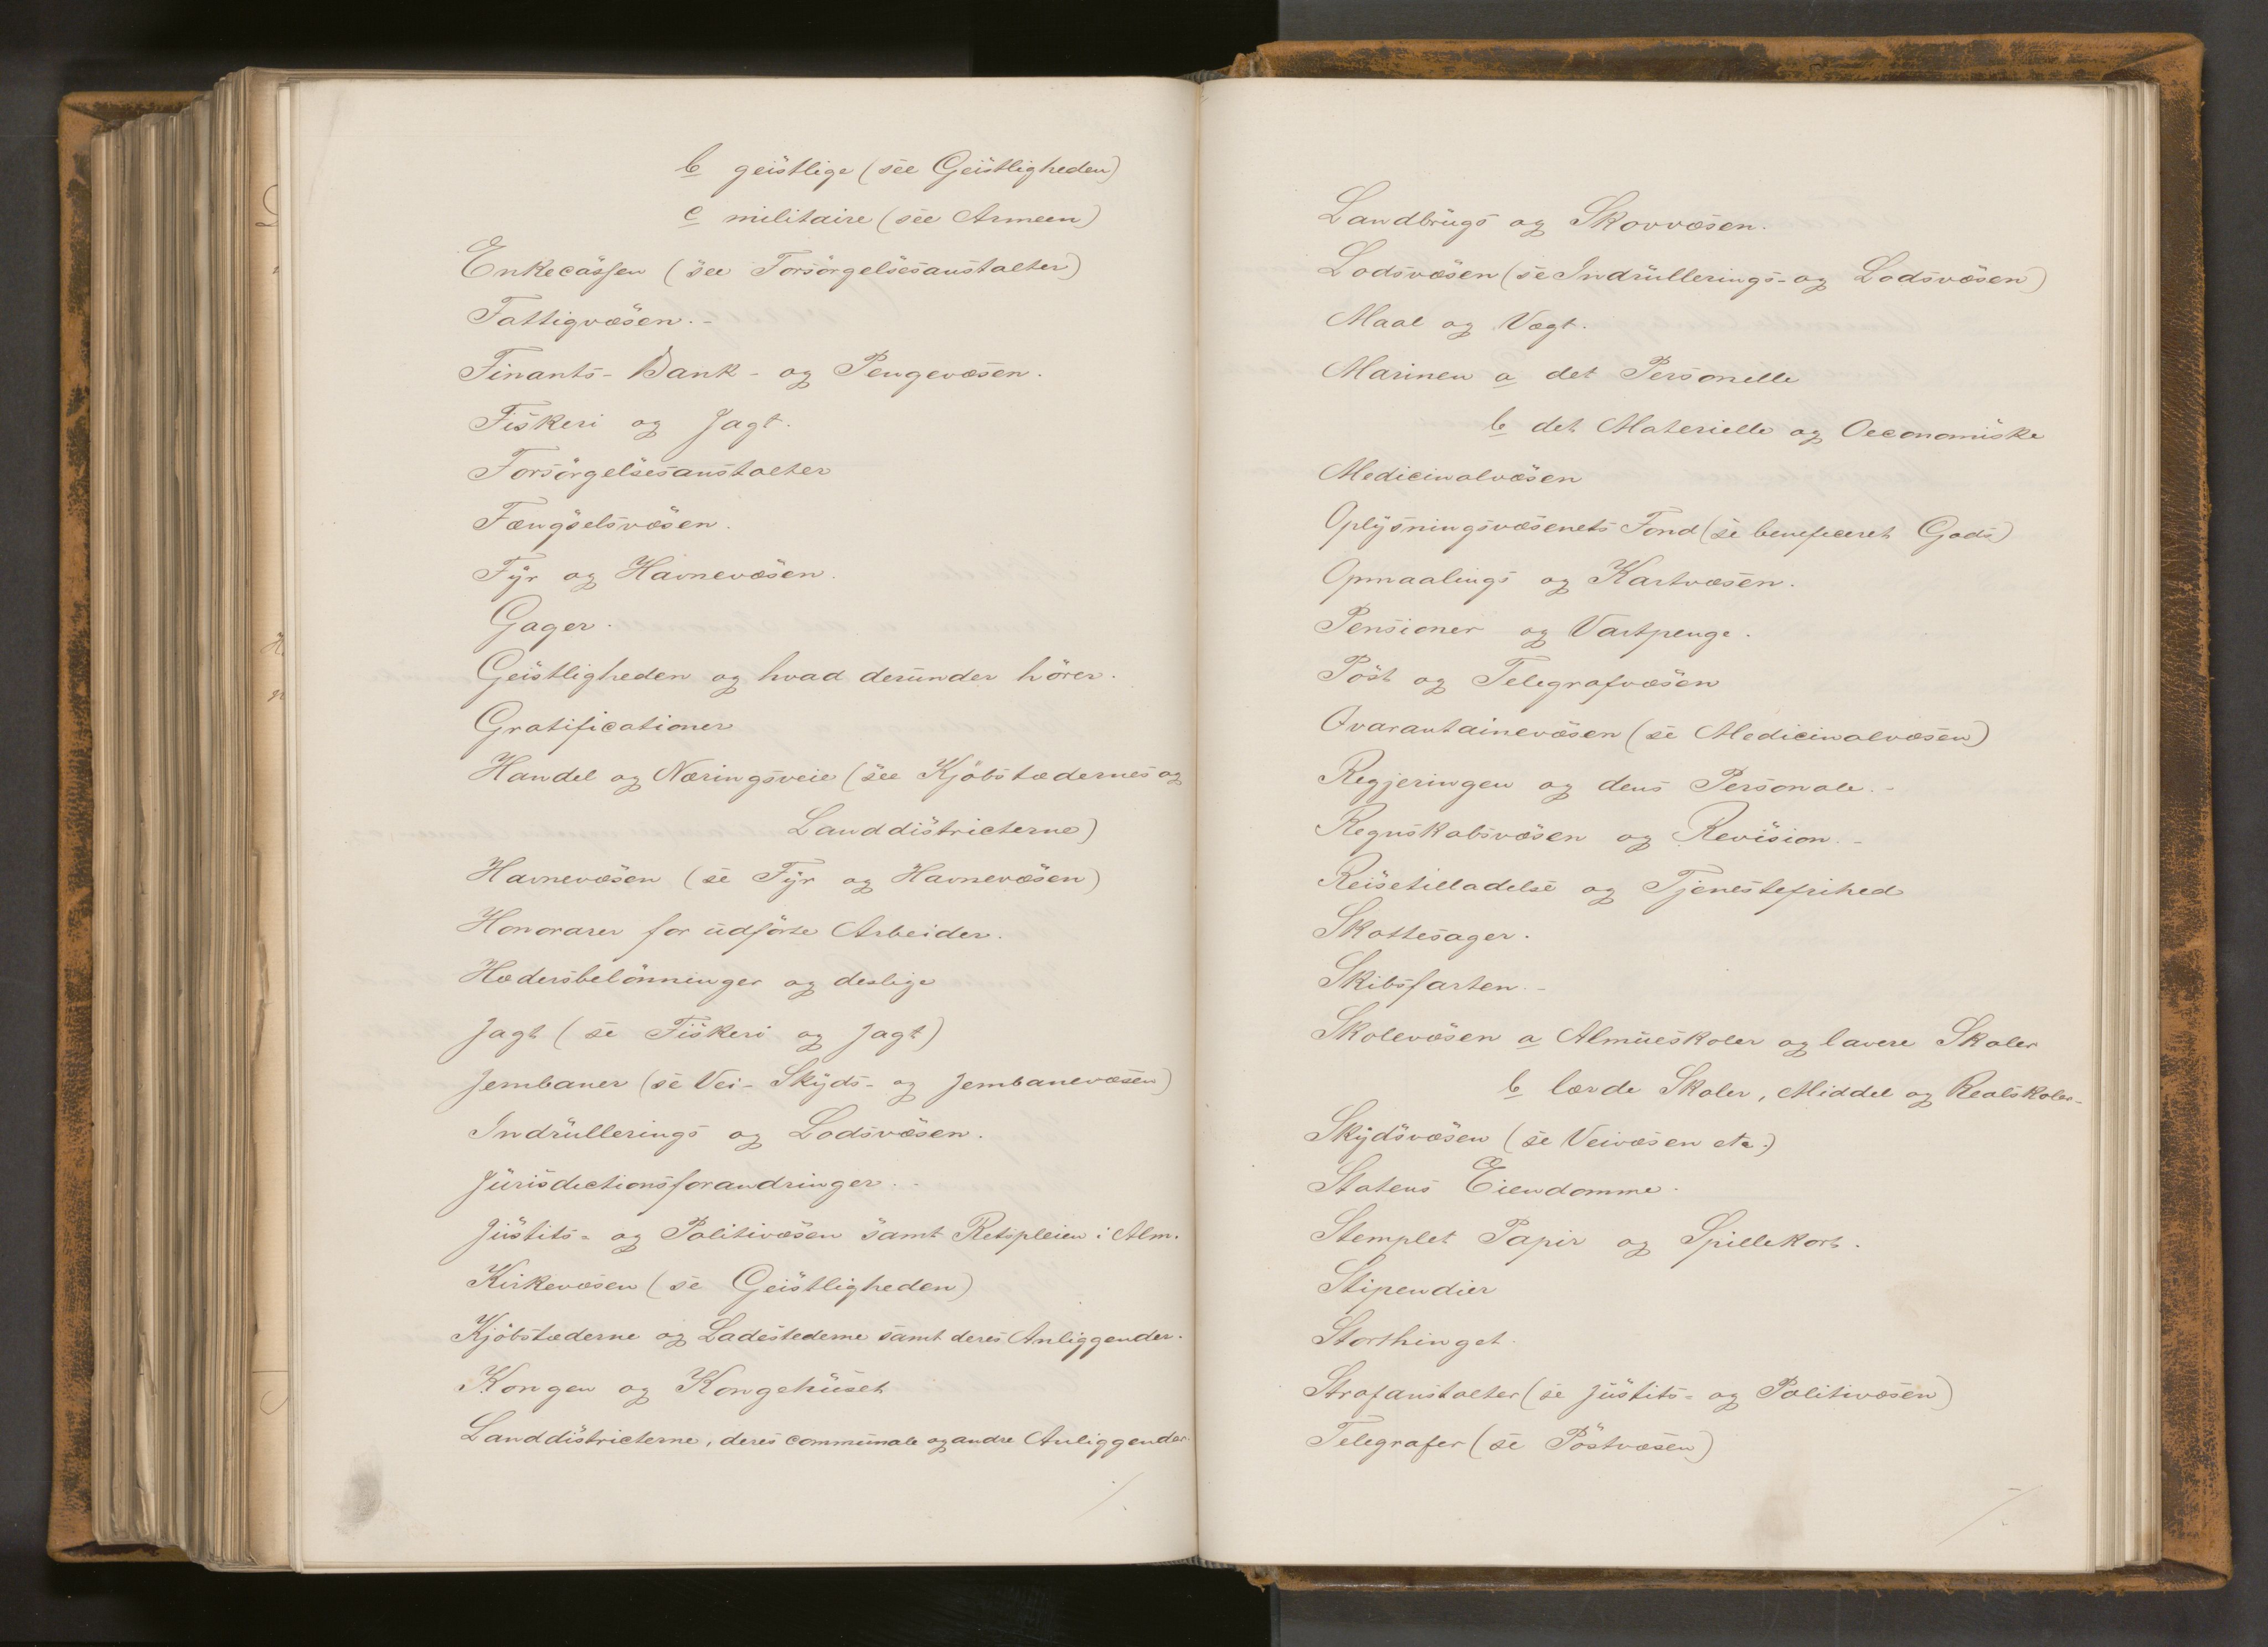 b geistlige (see Geistligheden)
c militaire (see Armeen)
Enkecassen (see Forsörgelsesanstalter)
Fattigvæsen.-
Finants- Bank- og Pengevæsen.
Fiskeri og Jagt.
Forsörgelsesanstalter
Fængselsvæsen.
Fyr og Havnevæsen.
Gager.
Geistligheden og hvad derunder hörer.
Gratificationer
Handel og Næringsveie (see Kjöbstædernes og
Landdistricterne)
Havnevæsen (se Fyr og Havnevæsen)
Honorarer for udförte Arbeider.
Hædersbelönninger og deslige
Jagt (se Fiskeri og Jagt)
Jernbaner (se Vei- Skyds- og Jernbanevæsen)
Indrullerings og Lodsvæsen.
Jurisdictionsforandringer.-
Justits- og Politivæsen samt Retspleien i Alm.
Kirkevæsen (se Geistligheden)
Kjöbstæderne og Ladestederne samt deres Anliggender.
Kongen og Kongehuset
Landdistricterne, deres communale og andre Anliggender.
./.
Landbrugs og Skovvæsen.
Lodsvæsen (se Indrullerings- og Lodsvæsen)
Maal og Vægt.
Marinen a det Personelle
b det Materielle og Oeconomiske
Medicinalvæsen
Oplysningsvæsenets Fond (se beneficeret Gods)
Opmaalings og Kartvæsen.
Pensioner og Vartpenge.
Post og Telegrafvæsen
Qvarantainevæsen (se Medicinalvæsen)
Regjeringen og dens Personale.-
Regnskabsvæsen og Revision.-
Reisetilladelse og Tjenestefrihed
Skattesager.
Skibsfarten.-
Skolevæsen a Almueskoler og lavere Skoler
b lærde Skoler, Middel og Realskoler-
Skydsvæsen (se Veivæsen etc.)
Statens Eiendomme.
Stemplet Papir og Spillekort.
Stipendier
Storthinget.
Strafanstalter (se Justits- og Politivæsen)
Telegrafer (se Postvæsen)
./.